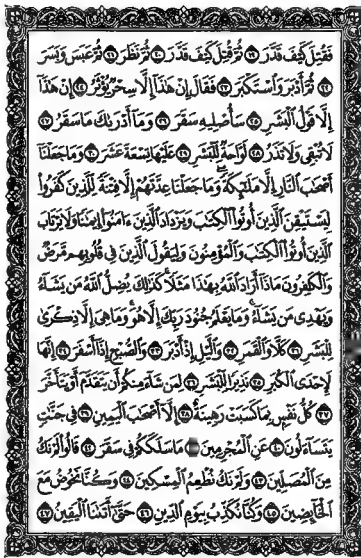 فَقُتِلَ كَيْفَ قَدَّرَ ١٩ ثُمَّ قُتِلَ كَيْفَ قَدَّرَ ٢٠ ثُمَّ نَظَرَ ٢١ ثُمَّ عَبَسَ وَبَسَرَ
٢٢ ثُمَّ أَدْبَرَ وَاسْتَكْبَرَ ٢٣ فَقَالَ إِنْ هَٰذَا إِلَّا سِحْرٌ يُؤْثَرُ ٢٤ إِنْ هَٰذَا
إِلَّا قَوْلُ الْبَشَرِ ٢٥ سَأُصْلِيهِ سَقَرَ ٢٦ وَمَا أَدْرَاكَ مَا سَقَرُ ٢٧
لَا تُبْقِي وَلَا تَذَرُ ٢٨ لَوَّاحَةٌ لِلْبَشَرِ ٢٩ عَلَيْهَا تِسْعَةَ عَشَرَ ٣٠ وَمَا جَعَلْنَا
أَصْحَابَ النَّارِ إِلَّا مَلَائِكَةً وَمَا جَعَلْنَا عِدَّتَهُمْ إِلَّا فِتْنَةً لِلَّذِينَ كَفَرُوا
لِيَسْتَيْقِنَ الَّذِينَ أُوتُوا الْكِتَابَ وَيَزْدَادَ الَّذِينَ ءَامَنُوا إِيمَانًا وَلَا يَرْتَابَ
الَّذِينَ أُوتُوا الْكِتَابَ وَالْمُؤْمِنُونَ وَلِيَقُولَ الَّذِينَ فِي قُلُوبِهِمْ مَرَضٌ
وَالْكَافِرُونَ مَاذَا أَرَادَ اللَّهُ بِهَٰذَا مَثَلًا كَذَٰلِكَ يُضِلُّ اللَّهُ مَنْ يَشَاءُ
وَيَهْدِي مَنْ يَشَاءُ وَمَا يَعْلَمُ جُنُودَ رَبِّكَ إِلَّا هُوَ وَمَا هِيَ إِلَّا ذِكْرَىٰ
لِلْبَشَرِ ٣١ كَلَّا وَالْقَمَرِ ٣٢ وَاللَّيْلِ إِذْ أَدْبَرَ ٣٣ وَالصُّبْحِ إِذَا أَسْفَرَ ٣٤ إِنَّهَا
لَإِحْدَى الْكُبَرِ ٣٥ نَذِيرًا لِلْبَشَرِ ٣٦ لِمَنْ شَاءَ مِنْكُمْ أَنْ يَتَقَدَّمَ أَوْ يَتَأَخَّرَ
٣٧ كُلُّ نَفْسٍ بِمَا كَسَبَتْ رَهِينَةٌ ٣٨ إِلَّا أَصْحَابَ الْيَمِينِ ٣٩ فِي جَنَّاتٍ
يَتَسَاءَلُونَ ٤٠ عَنِ الْمُجْرِمِينَ مَا سَلَكَكُمْ فِي سَقَرَ ٤٢ قَالُوا لَمْ نَكُ
مِنَ الْمُصَلِّينَ ٤٣ وَلَمْ نَكُ نُطْعِمُ الْمِسْكِينَ ٤٤ وَكُنَّا نَخُوضُ مَعَ
الْخَائِضِينَ ٤٥ وَكُنَّا نُكَذِّبُ بِيَوْمِ الدِّينِ ٤٦ حَتَّىٰ أَتَانَا الْيَقِينُ ٤٧